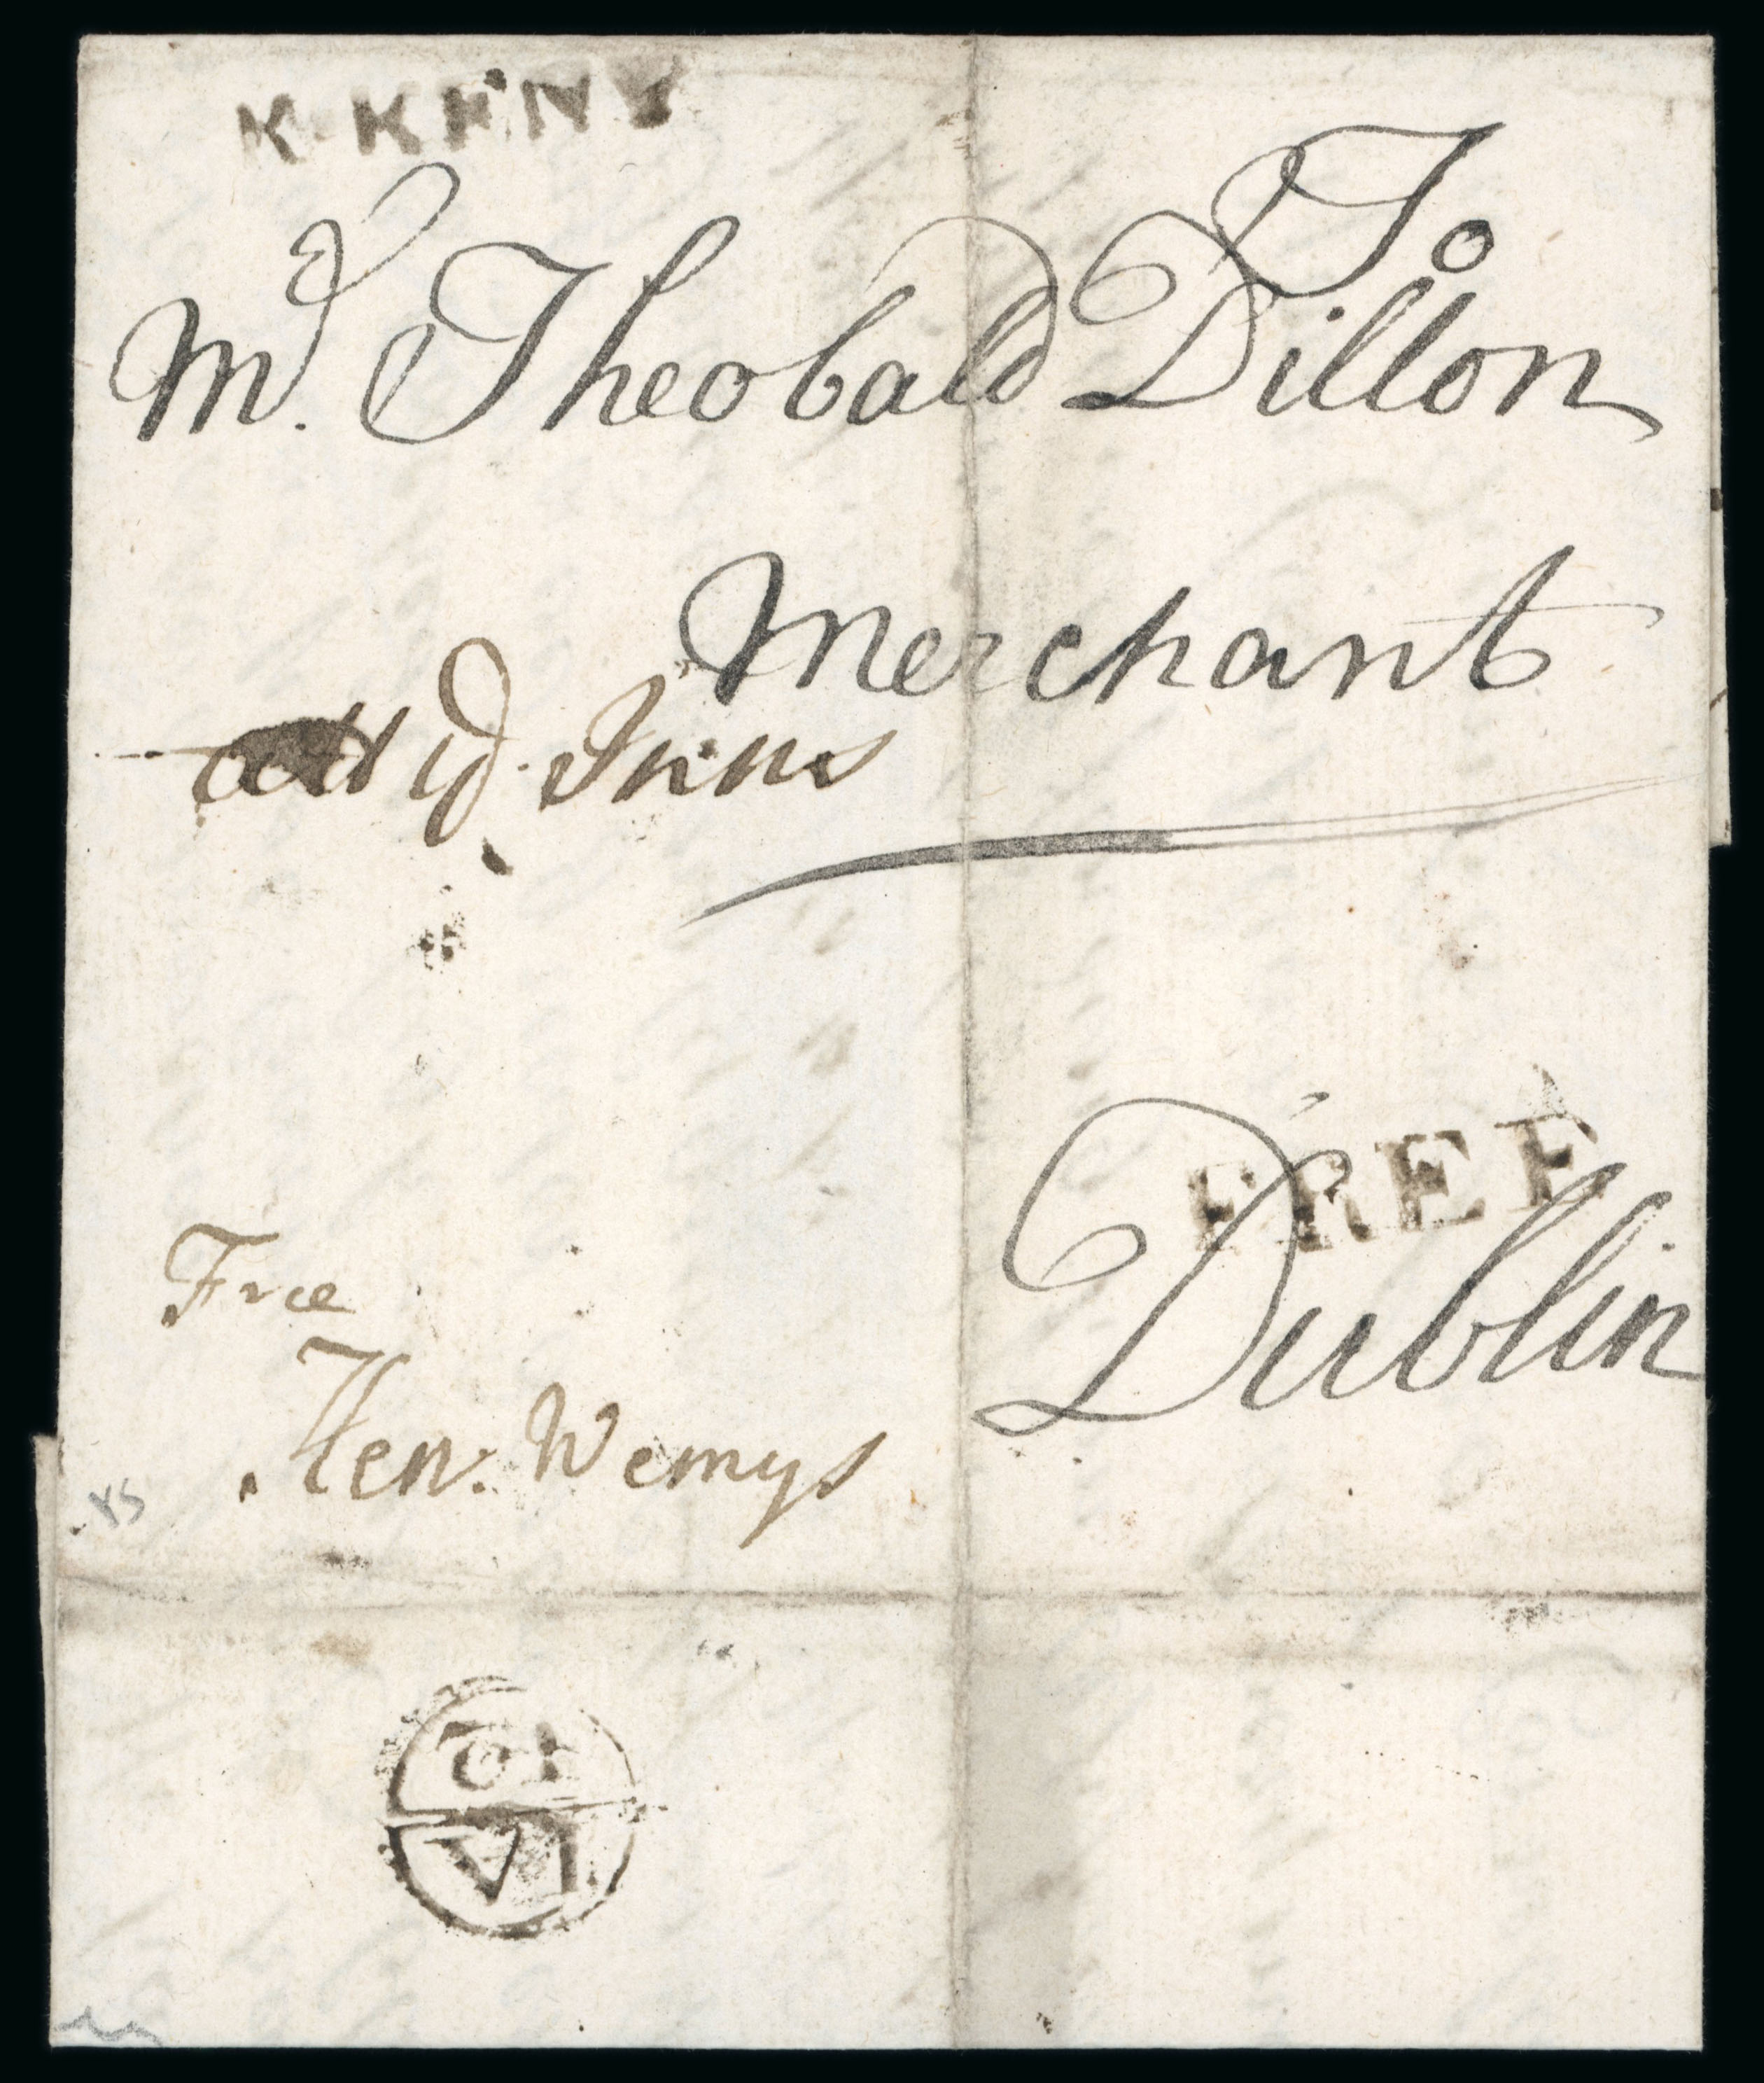 K·KENY
To
Mr. Theobald Dillon
Merchant
Inns
FREE
Dublin
Free
Hen: Wemys